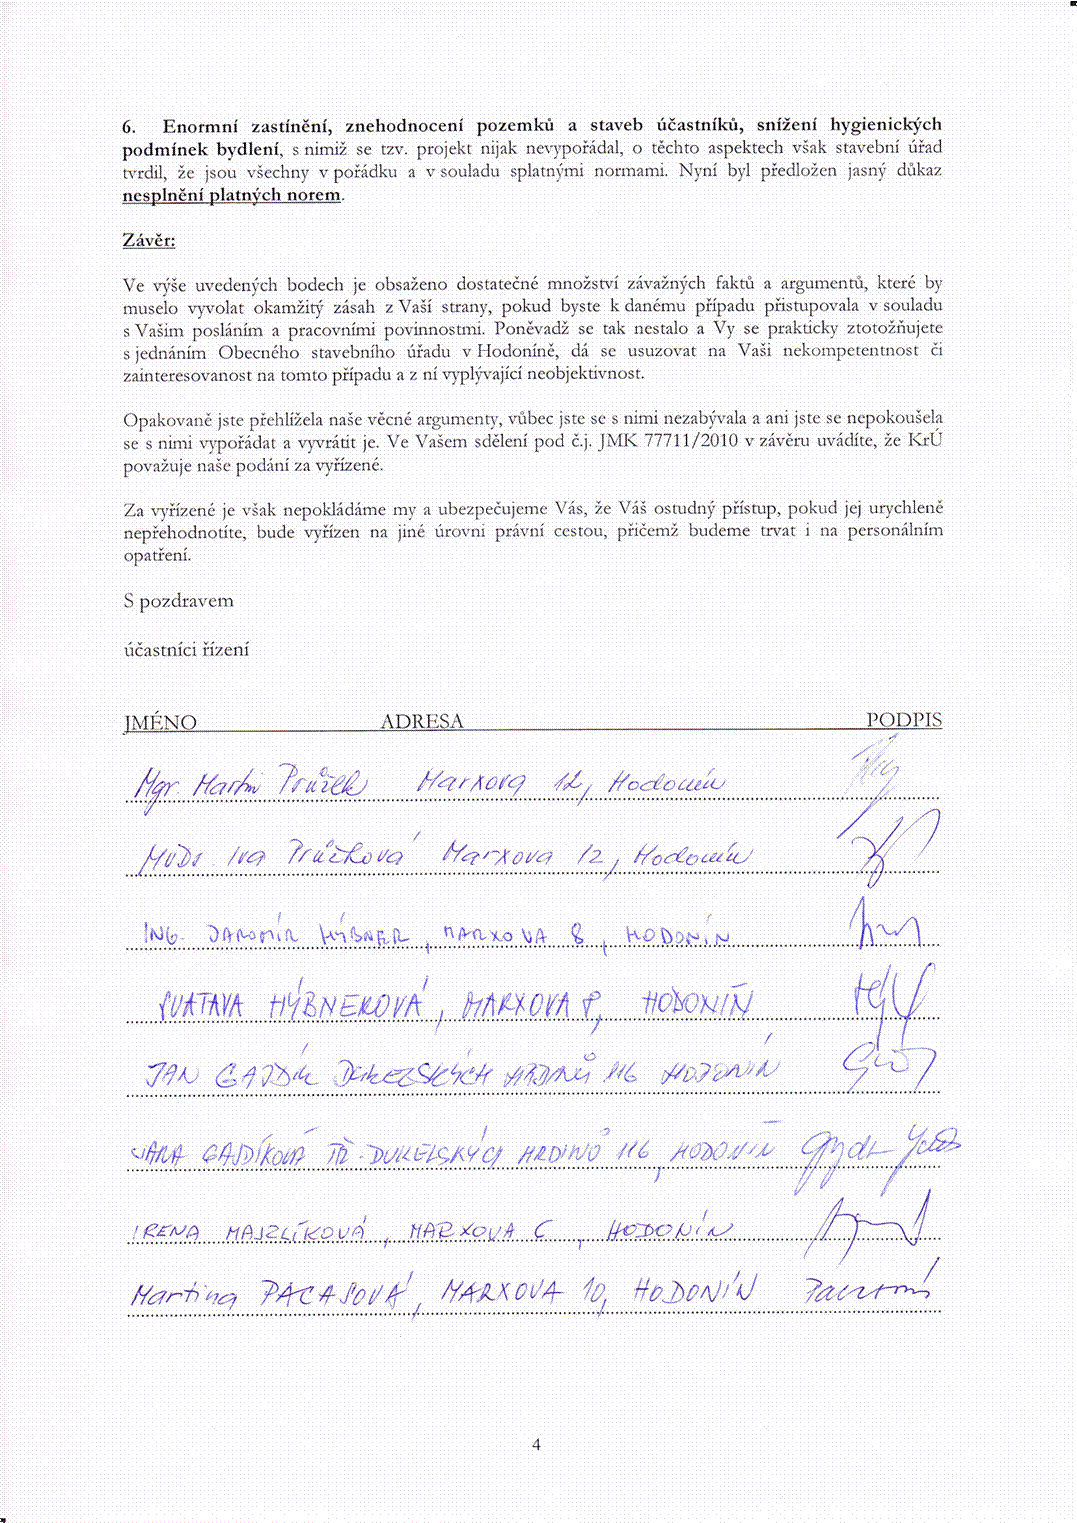 6. Enormní zastínění, znehodnocení pozemků a staveb účastníků, snížení hygienických
podmínek bydlení, s nimiž se tzv. projekt nijak nevypořádal, o těchto aspektech však stavební úřad
tvrdil, že jsou všechny v pořádku a v souladu splatnými normami. Nyní byl předložen jasný důkaz
nesplnění platných norem.
Závěr:
Ve výše uvedených bodech je obsaženo dostatečné množství závažných faktů a argumentů, které by
muselo vyvolat okamžitý zásah z Vaší strany, pokud byste k danému případu přistupovala v souladu
s Vašim posláním a pracovními povinnostmi. Poněvadž se tak nestalo a Vy se prakticky ztotožňujete
s jednáním Obecného stavebního úřadu v Hodoníně, dá se usuzovat na Vaši nekompetentnost či
zainteresovanost na tomto případu a z ní vyplývající neobjektivnost.
Opakovaně jste přehlížela naše věcné argumenty, vůbec jste se s nimi nezabývala a ani jste se nepokoušela
se s nimi vypořádat a vyvrátit je. Ve Vašem sdělení pod č.j. JMK 77711/2010 v závěru uvádíte, že KrÚ
považuje naše podání za vyřízené.
Za vyřízené je však nepokládáme my a ubezpečujeme Vás, že Váš ostudný přístup, pokud jej urychleně
nepřehodnotíte, bude vyřízen na jiné úrovni právní cestou, přičemž budeme trvat i na personálním
opatření.
S pozdravem
účastníci řízení
JMÉNO ADRESA PODPIS
Mgr. Martin Průžek Marxova 12, Hodonín
MVDr. Iva Průžková Marxova 12, Hodonín
ING. JAROMÍR HÝBNER, MARXOVA 8, HODONÍN
SVATAVA HÝBNEROVÁ, MARXOVA 8, HODONÍN
JAN GAJDÍK DUKELSKÝCH HRDINŮ 116 HODONÍN
JANA GAJDÍKOVÁ TŘ. DUKELSKÝCH HRDINŮ 116, HODONÍN
IRENA MAJZLÍKOVÁ, MARXOVA 6, HODONÍN
Martina PACASOVÁ, MARXOVA 10, HODONÍN
4